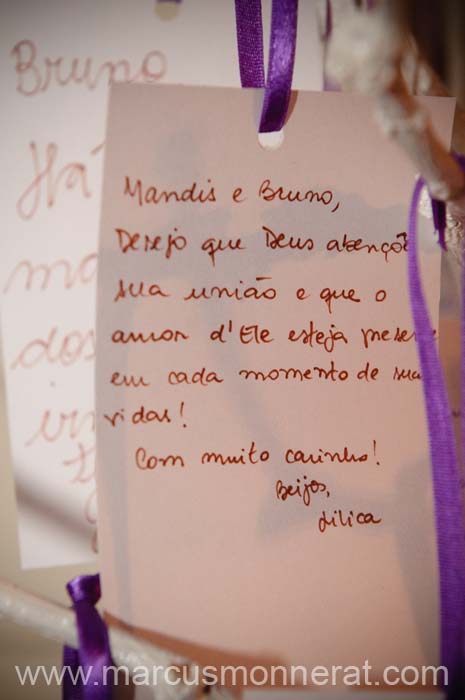 Mandis e Bruno,
Desejo que Deus abençõe
sua união e que o
amor d'Ele esteja
em cada momento de
vidas!
Com muito carinho!
Beijos,
Lilica
Bruno
Há
www.marcusmonnerat.com